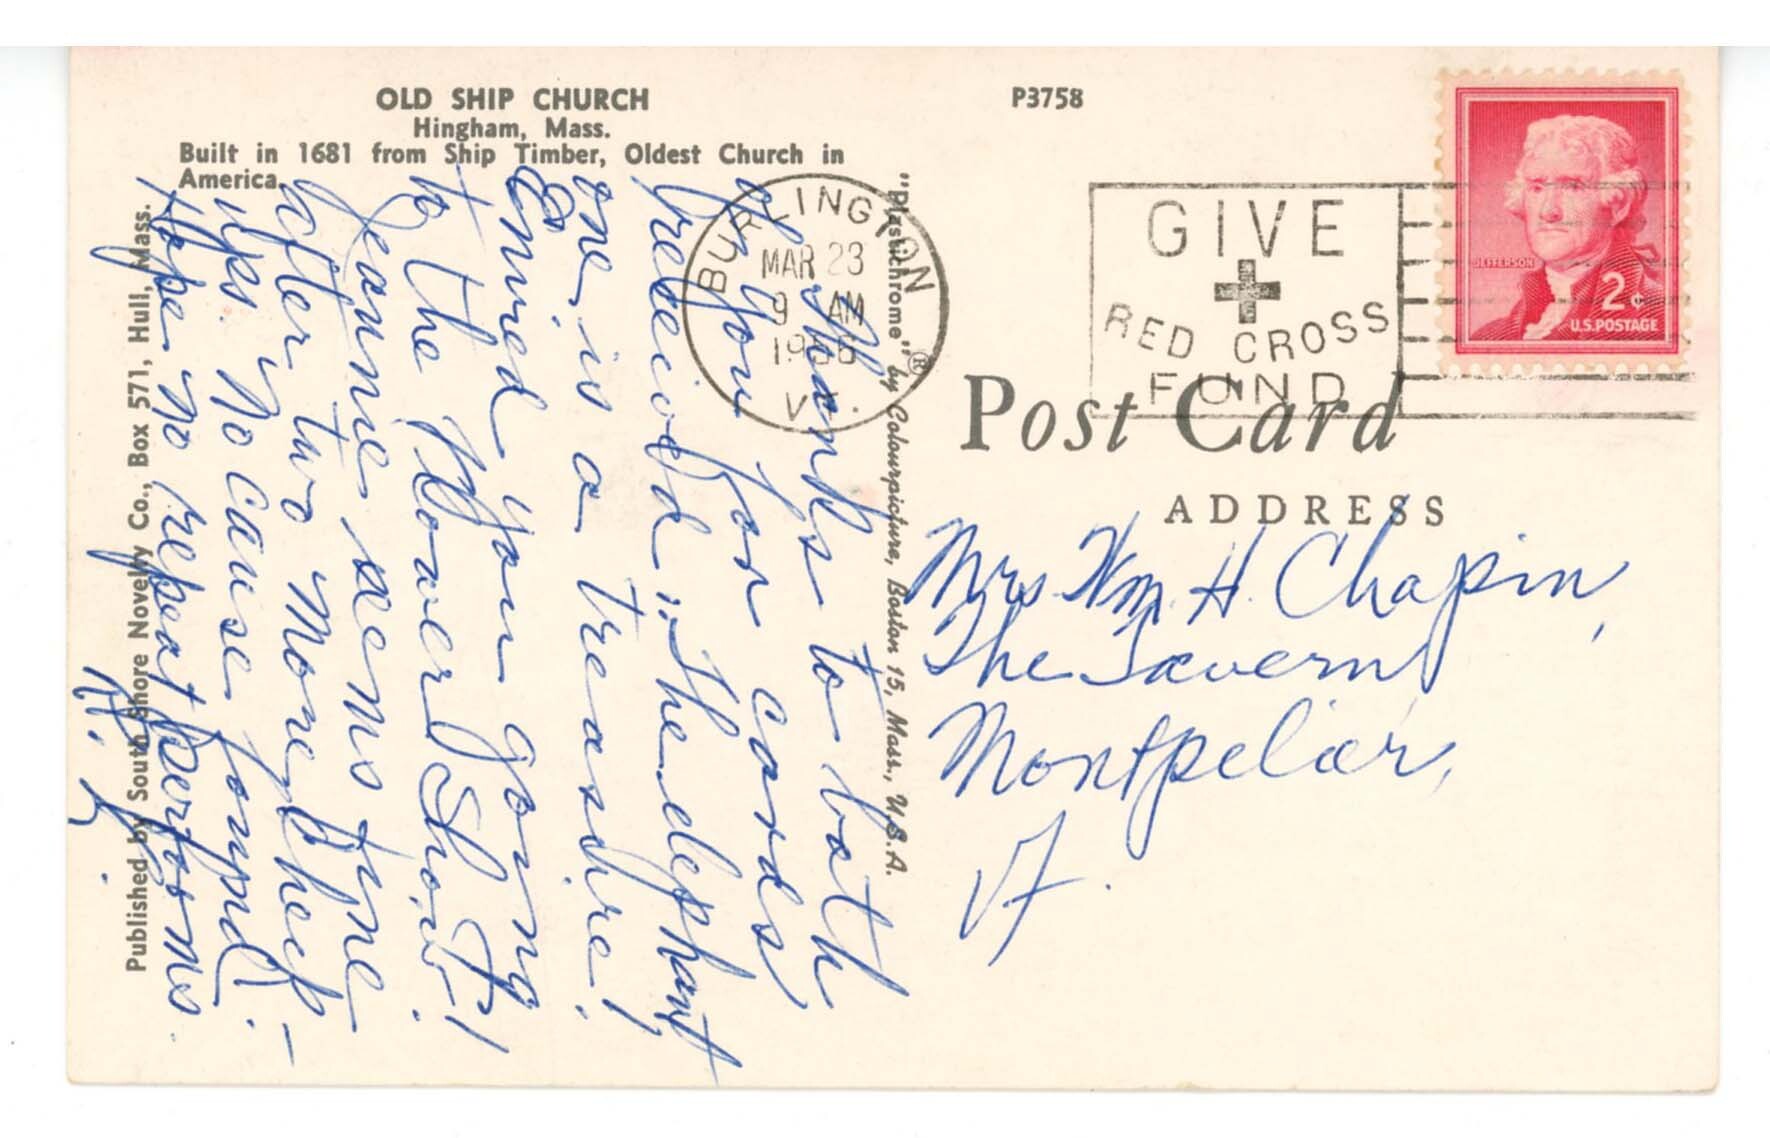 OLD SHIP CHURCH
Hingham, Mass.
Built in 1681 from Ship Timber, Oldest Church in
America.
P3758
BURLINGTON
MAR 23
9 AM
1956
VT.
GIVE
RED CROSS
FUND
JEFFERSON
2¢
U.S.POSTAGE
Post Card
ADDRESS
Mrs. Wm. H. Chapin,
The Tavern
Montpelier,
Vt.
"Plastichrome" ® by Colourpicture, Boston 15, Mass., U.S.A.
Thanks to both
of you for cards
received. The elephant
one is a treasure!
Envied you going
to the Flower Show!
Jeanne seems fine
after two more
wks. No cause found.
Hope no repeat performs.
Published by South Shore Novelty Co., Box 571, Hull, Mass.